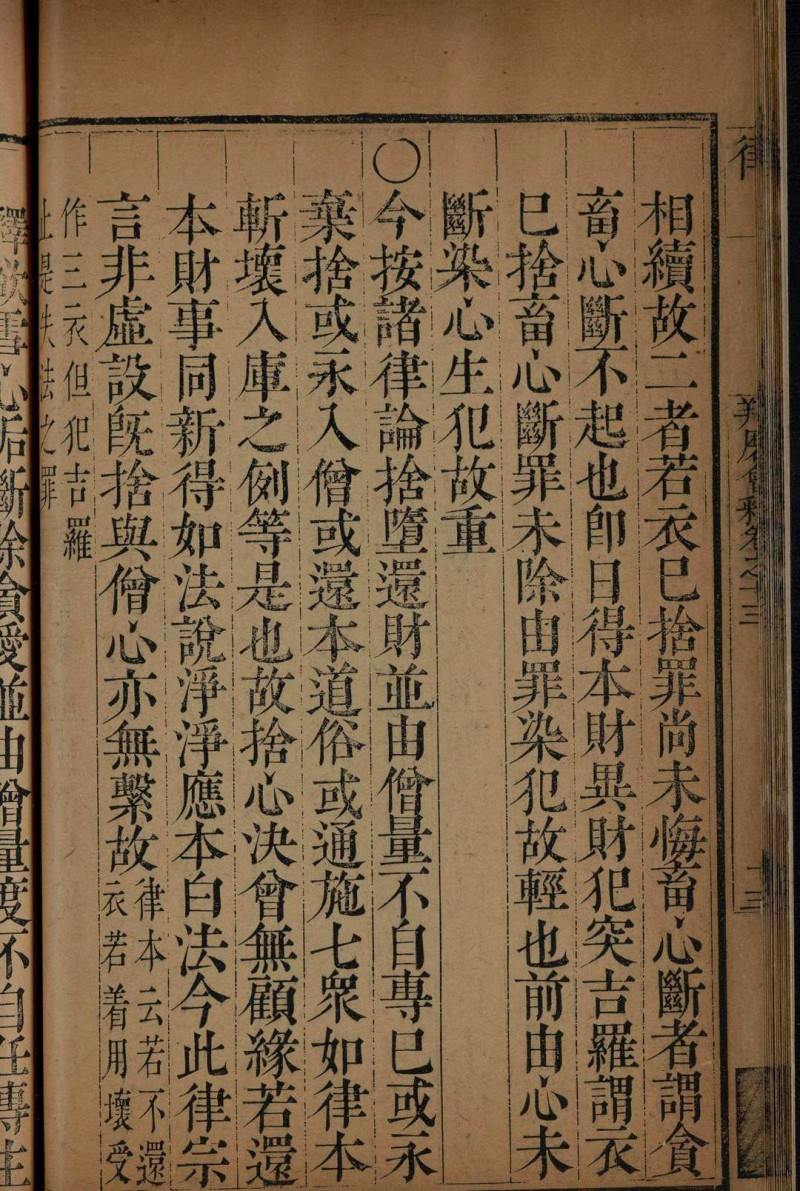 相續故二者若衣已捨罪尚未悔畜心斷者謂貪
畜心斷不起也即日得本財異財犯突吉羅謂衣
已捨畜心斷罪未除由罪染犯故輕也前由心未
斷染心生犯故重
○今按諸律論捨墮還財並由僧量不自專已或永
棄捨或永入僧或還本道俗或通施七衆如律本
斬壞入庫之例等是也故捨心決曾無顧緣若還
本財事同新得如法說淨淨應本白法今此律宗
言非虛設旣捨與僧心亦無繫故律本云若不還
衣若着用壞受
作三衣但犯吉羅